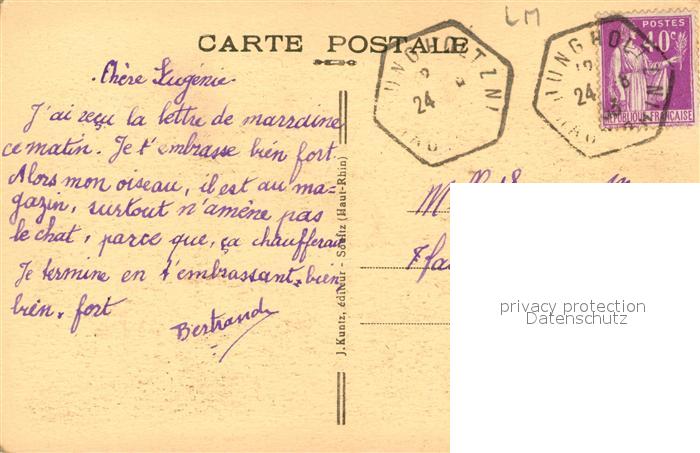 LM
CARTE POSTALE
Chère Eugénie
J'ai reçu la lettre de marraine
ce matin. Je t'embrasse bien fort.
Alors mon oiseau, il est au ma-
gazin, surtout n'amène pas
le chat, parce que, ça chaufferait
Je termine en t'embrassant bien
bien, fort
Bertrande
J. Kuntz, éditeur - Soultz (Haut-Rhin)
JUNGHOLTZ
24
JUNGHOLTZ
12
24
POSTES
40c
REPUBLIQUE FRANÇAISE
privacy protection
Datenschutz